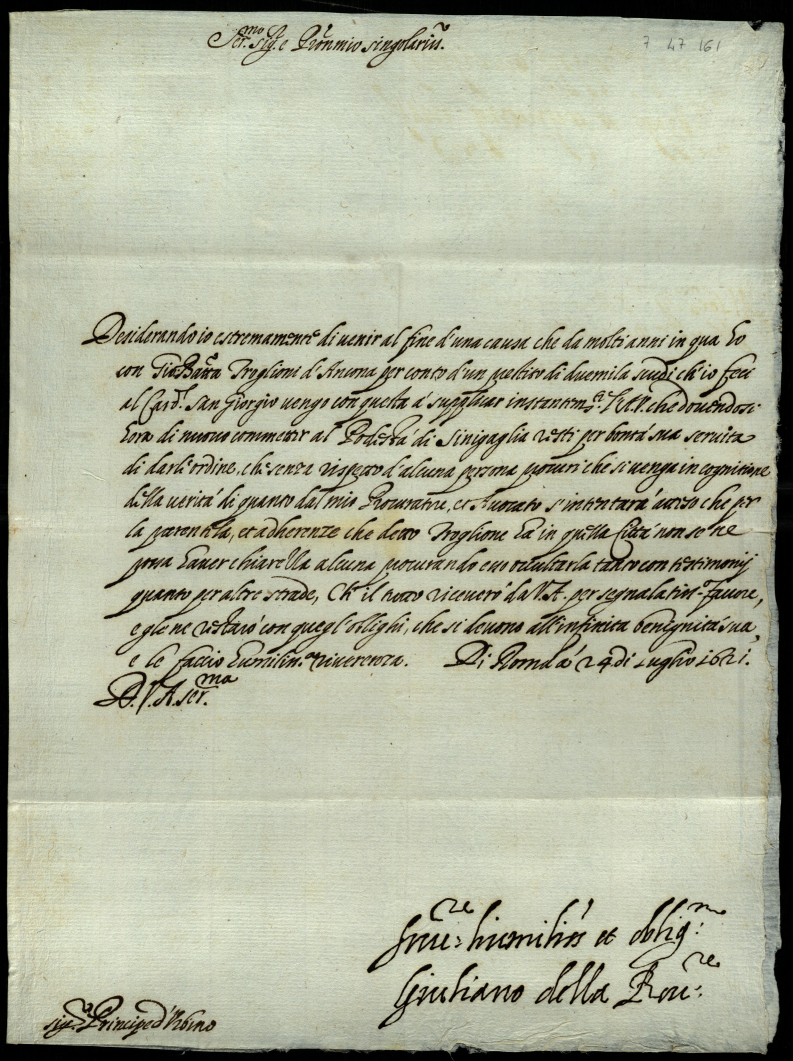 Ser.mo Sig.r e Pron mio singolariss.re
7 47 161
Desiderando io estremamente di venir al fine d'una causa che da molti anni in qua ho
con Gio Batta Troglioni d'Ancona per conto d'un prestito di duemila scudi ch'io feci
al Card.l San Giorgio vengo con questa à supplicar instantem.te V.A. che dovendosi
hora di nuovo commetter al Podestà di Sinigaglia resti per bontà sua servita
di darle ordine, che senza rispetto d'alcuna persona procuri che si venga in cognitione
della verità di quanto dal mio Procuratore, et Avocato s'intentarà acciò che per
la parentela, et adherenze che detto Troglione hà in quella Città non se ne
possa haver chiarella alcuna procurando esso risultarla tanto con testimonij
quanto per altre strade, Ch'il tutto riceverò da V.A. per segnalatiss.o favore,
e gle ne restarò con quegl'oblighi, che si devono all'infinita benignità sua,
e le faccio humiliss.a riverenza. Di Roma à 24 di Luglio 1621.
D. V. A. Ser.ma
Ser.re humiliss et oblig.mo
Giuliano della Rou.re
Sig.r Principe d'Urbino